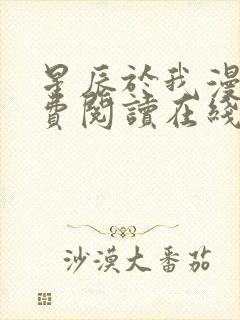 星辰於我漫
費閱讀在綫
沙漠大番茄